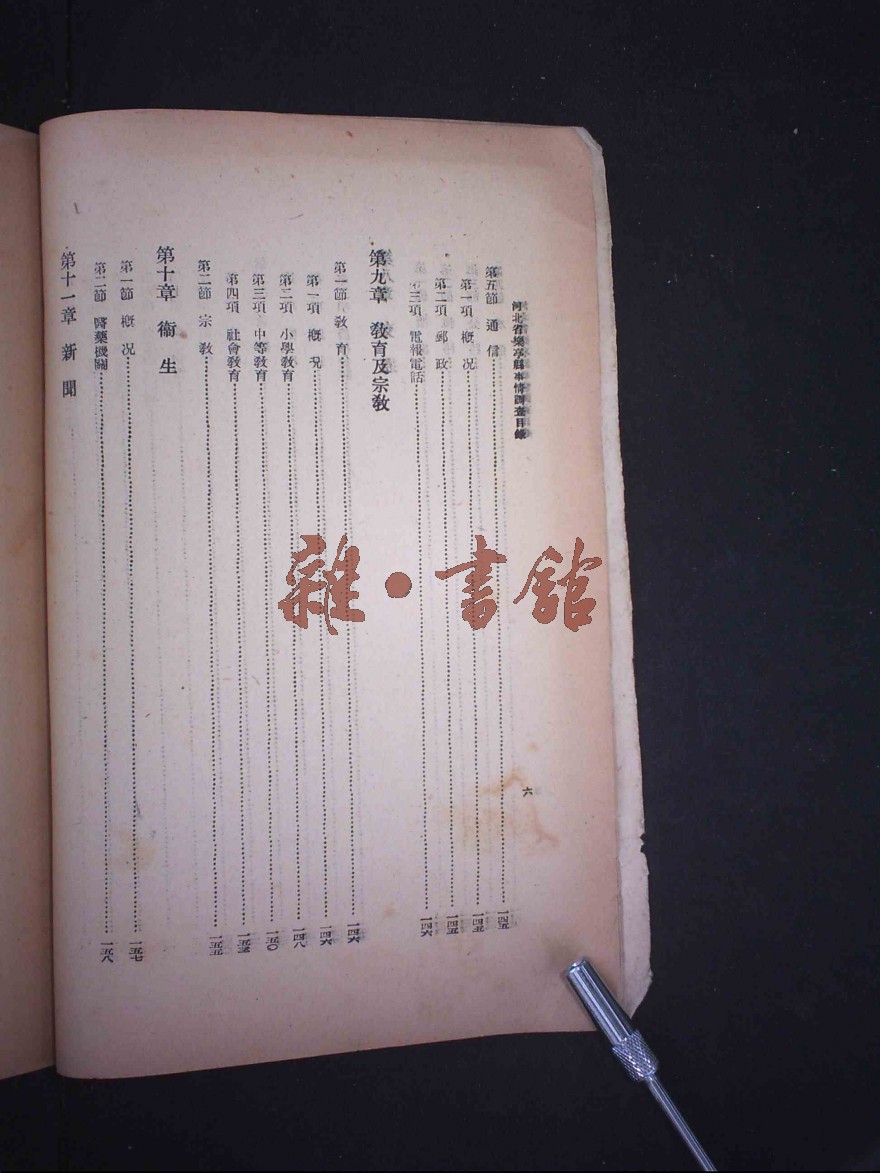 河北省樂亭縣事情調查目錄
六
第五節 通信……一四五
第一項 概況……一四五
第二項 郵政……一四五
第三項 電報電話……一四六
第九章 敎育及宗敎
第一節 敎育……一四六
第一項 概況……一四六
第二項 小學敎育……一四八
第三項 中等敎育……一五〇
第四項 社會敎育……一五三
第二節 宗敎……一五五
第十章 衞生
第一節 概況……一五七
第二節 醫藥機關……一五八
第十一章 新聞
雜·書館